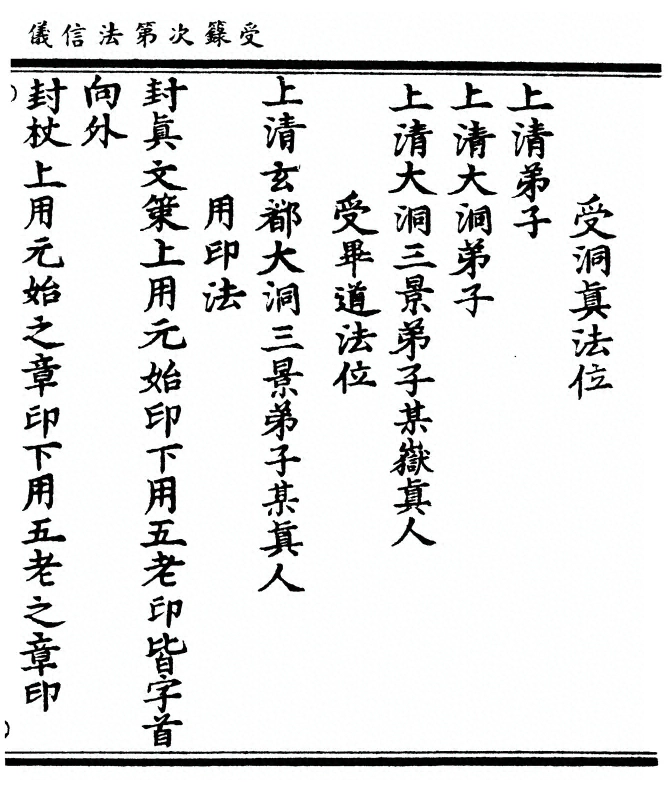 受籙次第法信儀
受洞眞法位
上清弟子
上清大洞弟子
上清大洞三景弟子某嶽眞人
受畢道法位
上清玄都大洞三景弟子某眞人
用印法
封眞文䇿上用元始印下用五老印皆字首
向外
封杖上用元始之章印下用五老之章印